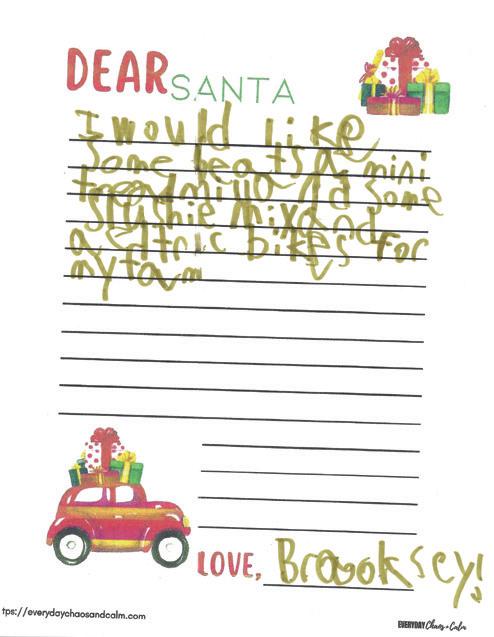 DEAR SANTA
I would like
some beats a mini
treadmill a nd some
slushie mix and
a Edtric bikes for
my fam
LOVE, Brooksey!
tps://everydaychaosandcalm.com
EVERYDAY Chaos + Calm